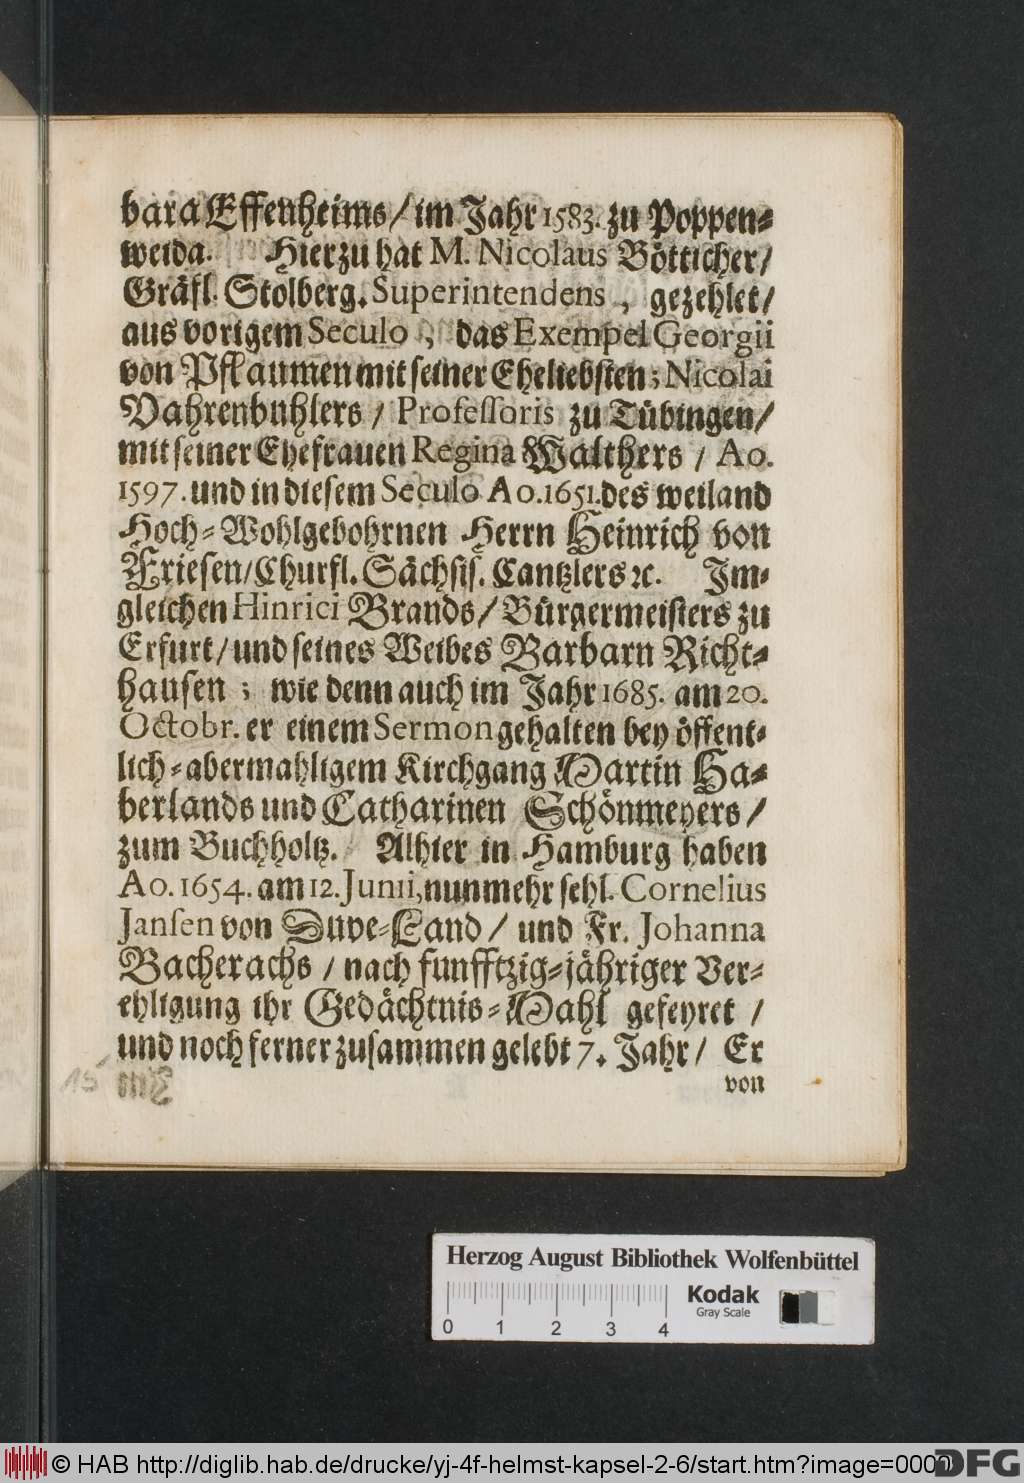 bara Effenheims / im Jahr 1583. zu Poppen-
weida. Hierzu hat M. Nicolaus Bötticher /
Gräfl. Stolberg. Superintendens, gezehlet /
aus vorigem Seculo, das Exempel Georgii
von Pflaumen mit seiner Eheliebsten; Nicolai
Vahrenbuhlers / Professoris zu Tübingen /
mit seiner Ehefrauen Regina Walthers / Ao.
1597. und in diesem Seculo Ao. 1651. des weiland
Hoch-Wohlgebohrnen Herrn Heinrich von
Friesen / Churfl. Sächsis. Cantzlers ꝛc. Im-
gleichen Hinrici Brands / Bürgermeisters zu
Erfurt / und seines Weibes Barbarn Richt-
hausen; wie denn auch im Jahr 1685. am 20.
Octobr. er einem Sermon gehalten bey öffent-
lich-abermahligem Kirchgang Martin Ha-
berlands und Catharinen Schönmeyers /
zum Buchholtz. Alhier in Hamburg haben
Ao. 1654. am 12. Junii, nunmehr sehl. Cornelius
Jansen von Duve-Land / und Fr. Johanna
Bacherachs / nach funfftzig-jähriger Ver-
ehligung ihr Gedächtnis-Mahl gefeyret /
und noch ferner zusammen gelebt 7. Jahr / Er
von
Herzog August Bibliothek Wolfenbüttel
Kodak
Gray Scale
0 1 2 3 4
© HAB http://diglib.hab.de/drucke/yj-4f-helmst-kapsel-2-6/start.htm?image=000
DFG